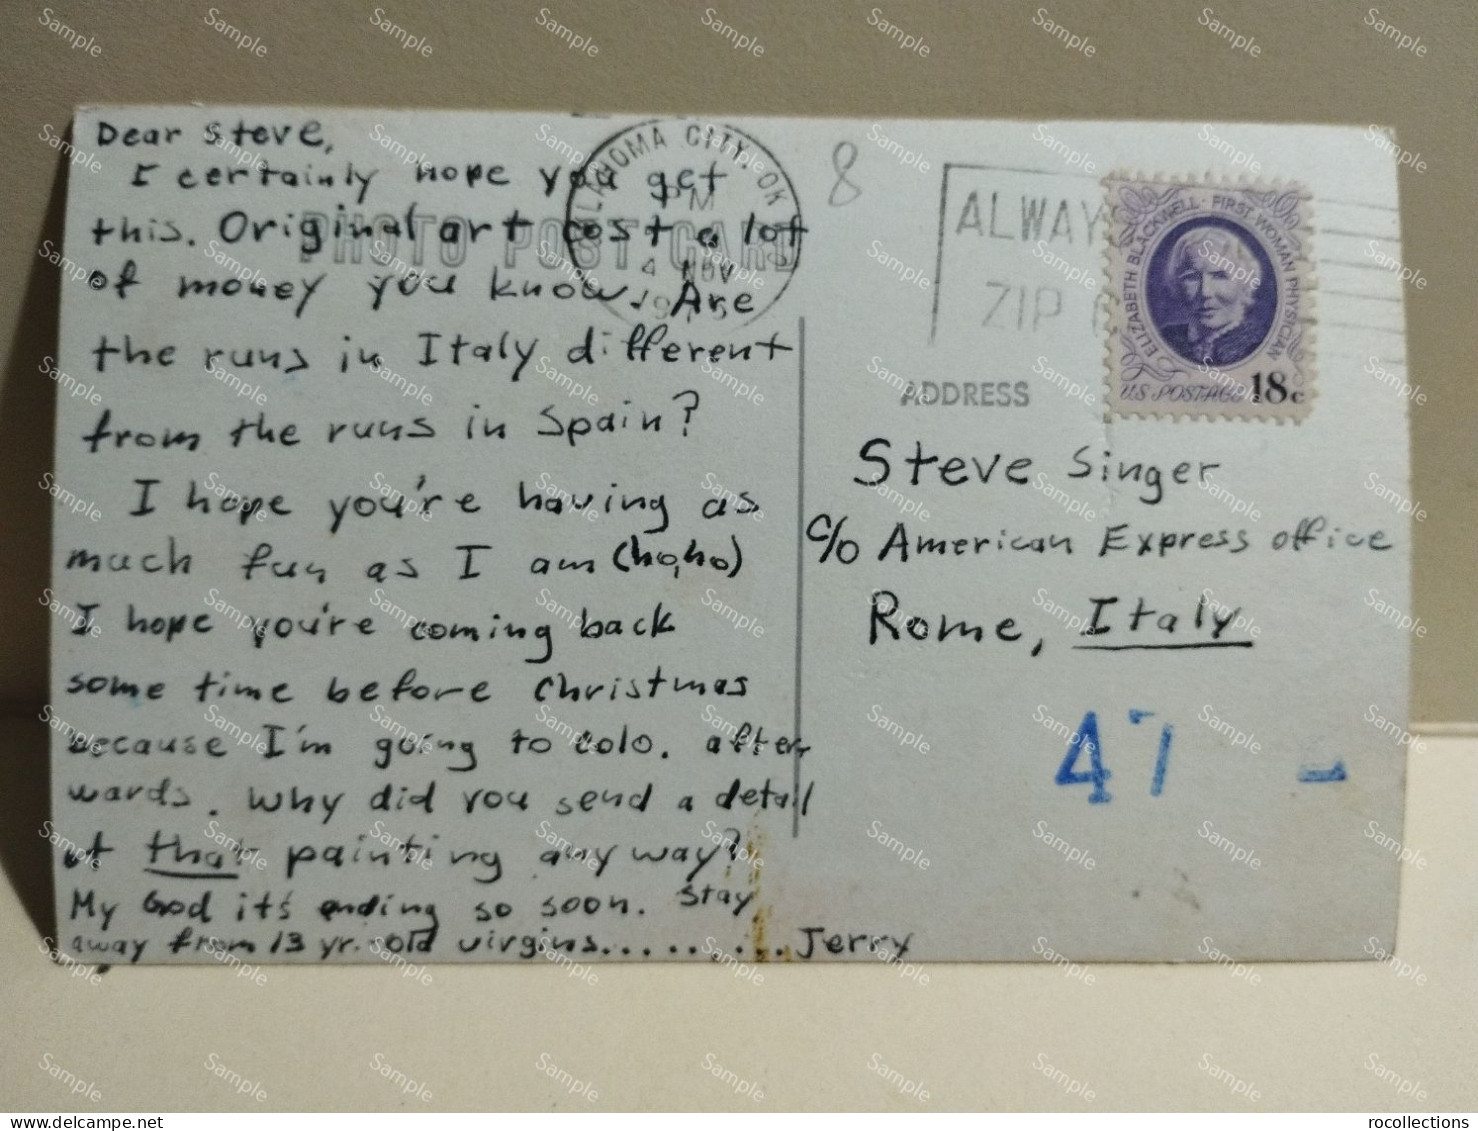 Dear Steve,
I certainly hope you get
this. Original art cost a lot
of money you know. Are
the runs in Italy different
from the runs in Spain?
I hope you're having as
much fun as I am (ho,ho)
I hope you're coming back
some time before christmas
because I'm going to colo. after-
wards. Why did you send a detail
of that painting anyway?
My God it's ending so soon. Stay
away from 13 yr. old virgins......... Jerry
PHOTO POST CARD
OKLAHOMA CITY, OK
PM
4 NOV
8
ALWAY
ZIP
ELIZABETH BLACKWELL · FIRST WOMAN PHYSICIAN
U.S. POSTAGE 18c
ADDRESS
Steve Singer
c/o American Express office
Rome, Italy
47 -
Sample
rocollections